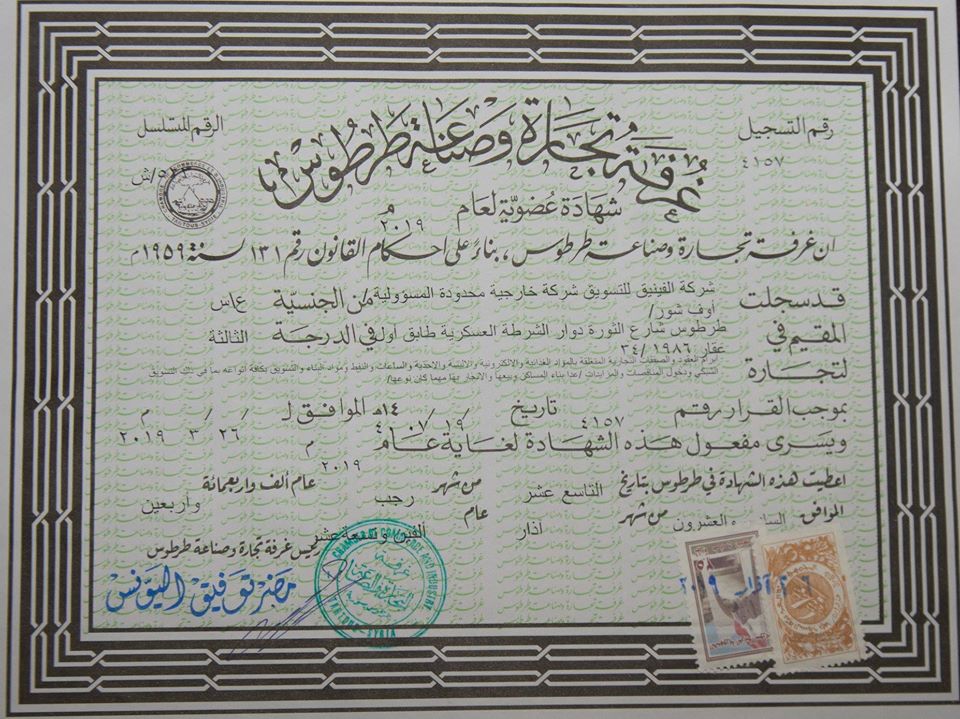 رقم التسجيل
٤١٥٧
الرقم المتسلسل
/ش
غرفة تجارة وصناعة طرطوس
شهادة عضوية لعام ٢٠١٩ م
ان غرفة تجارة وصناعة طرطوس ، بناءً على احكام القانون رقم ١٣١ لسنة ١٩٥٩م
قد سجلت شركة الفينيق للتسويق شركة خارجية محدودة المسؤولية من الجنسية
أوف شور/
المقيم في طرطوس شارع الثورة دوار الشرطة العسكرية طابق أول في الدرجة الثالثة
عقار ٣٤/١٩٨٦
لتجارة ابرام العقود والصفقات التجارية المتعلقة بالمواد الغذائية والالكترونية والالبسة والاحذية والساعات والنفط ومواد البناء والتسويق بكافة أنواعه بما في ذلك التسويق
الشبكي ودخول المناقصات والمزايدات /عدا بناء المساكن وبيعها والاتجار بها مهما كان نوعها/
بموجب القرار رقم ٤١٥٧ تاريخ ١٩/ ٠٧/ ١٤٤٠هـ الموافق ل ٢٦/ ٣/ ٢٠١٩ م
ويسرى مفعول هذه الشهادة لغاية عام ٢٠١٩ م
اعطيت هذه الشهادة في طرطوس بتاريخ التاسع عشر من شهر رجب عام ألف واربعمائة واربعين
الموافق العشرون من شهر آذار عام الفين عشر
رئيس غرفة تجارة وصناعة طرطوس
مضر توفيق اليونس
CHAMBER OF COMMERCE AND INDUSTRY
٢٦ آذار ٢٠١٩